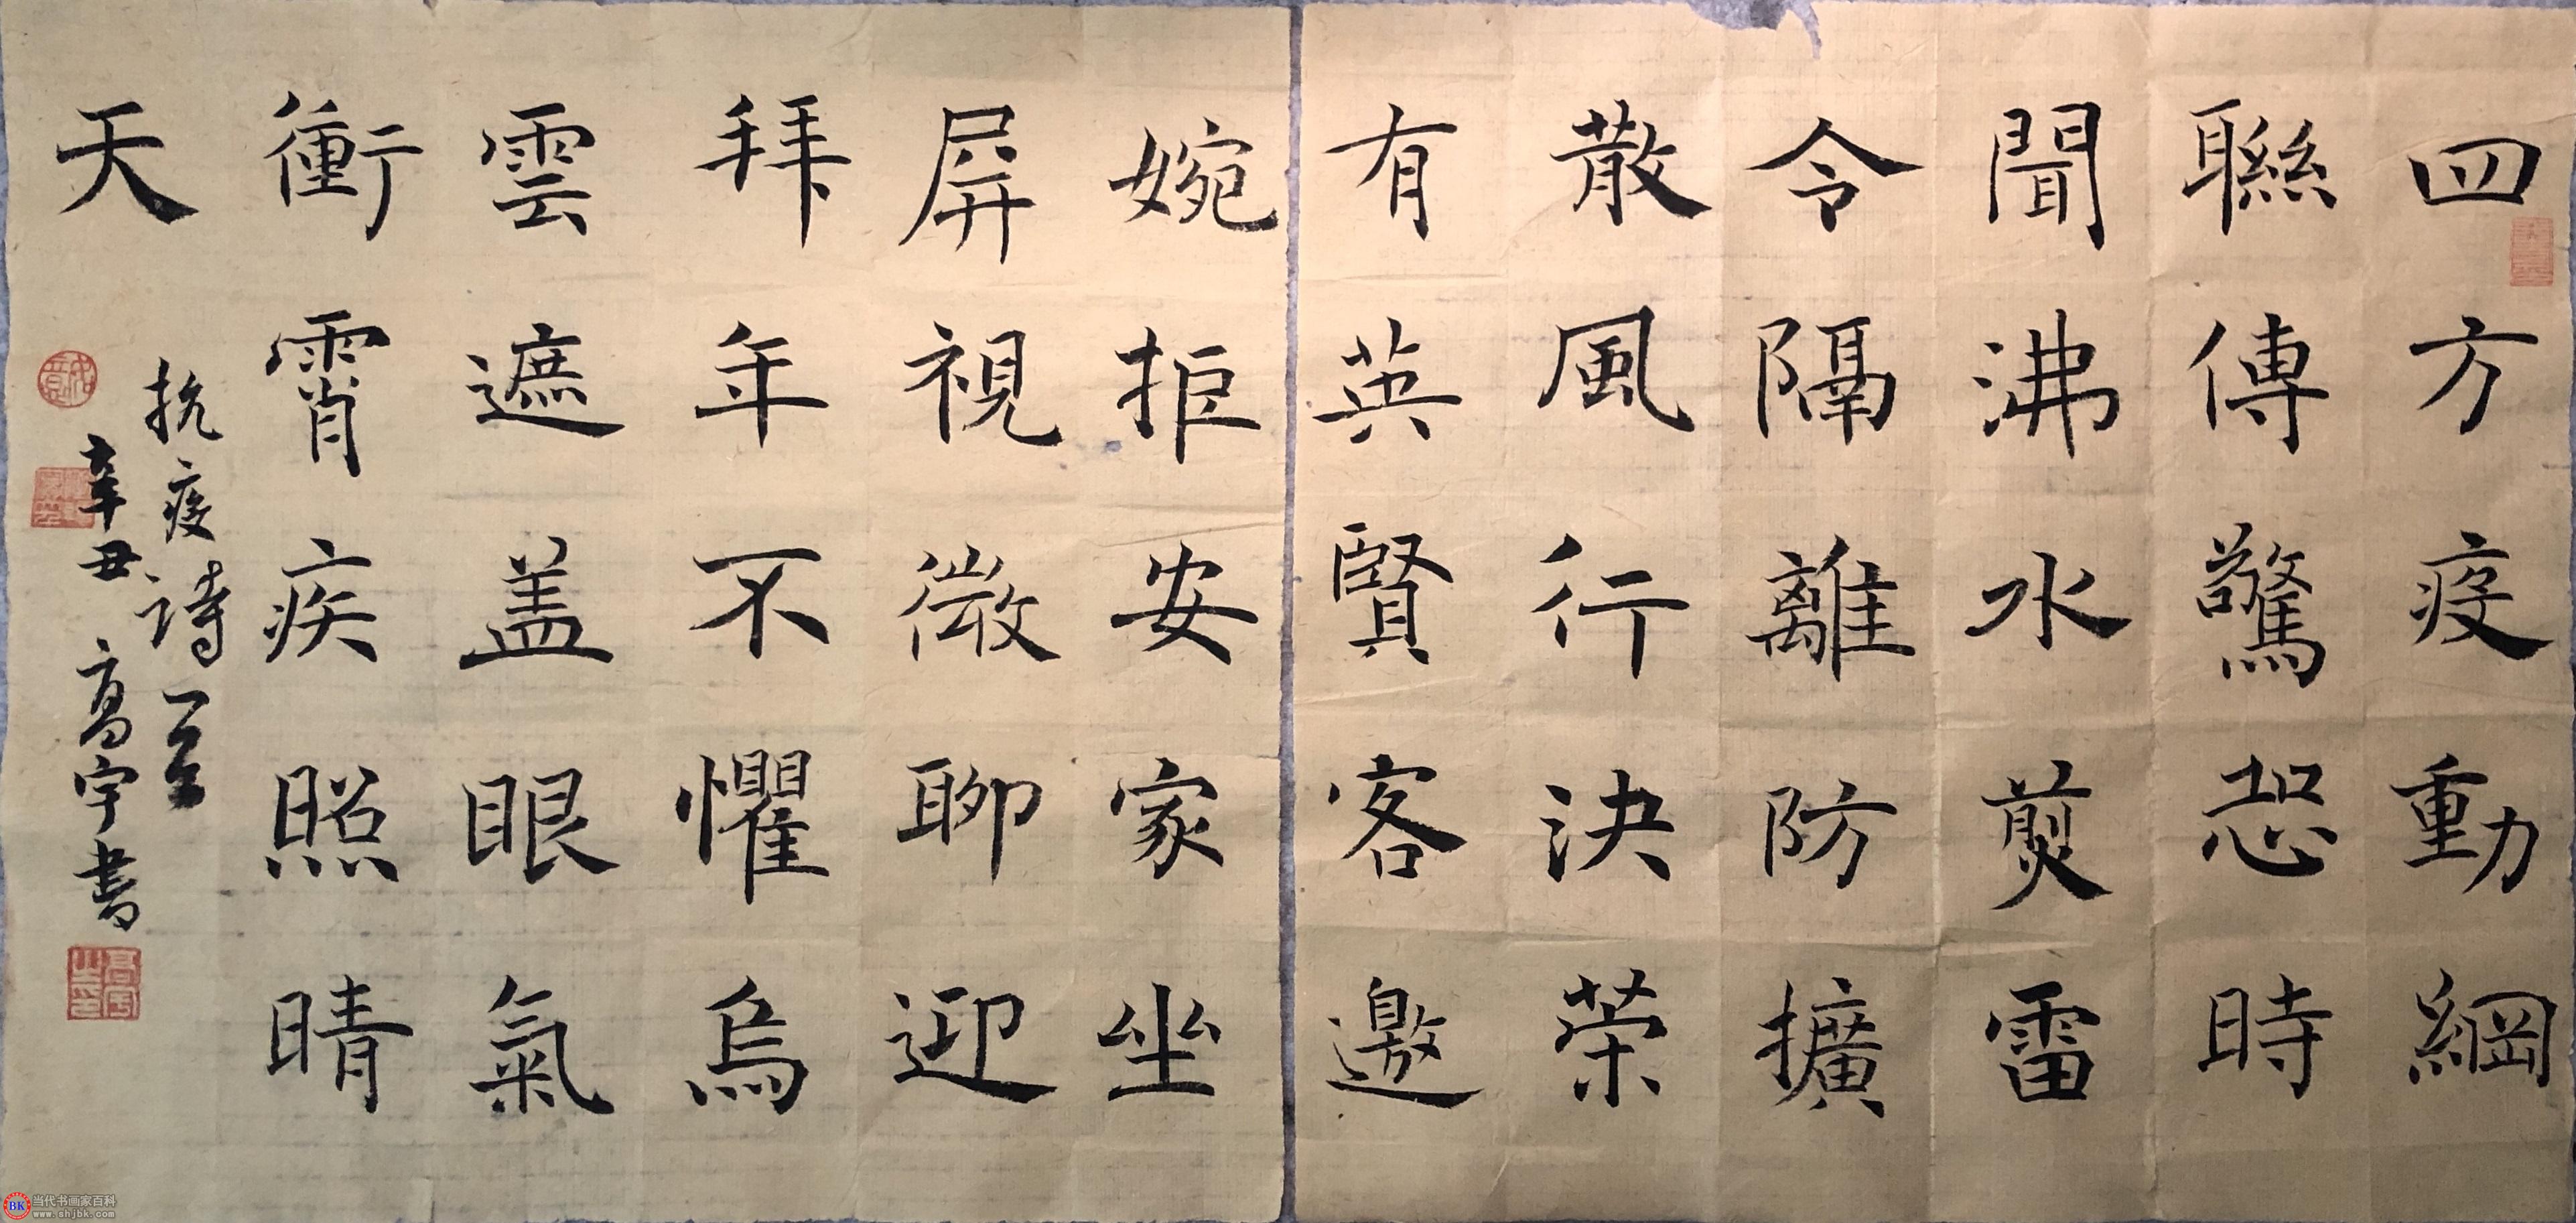 四方疫動綱
聯傳驚恐時
聞沸水煎雷
令隔離防擴
散風行決荣
有英賢客邀
婉拒安家坐
屏視微聊迎
拜年不懼烏
雲遮盖眼氣
衝霄疾照晴
天
抗疫诗一首
辛丑高宇書
当代书画家百科
www.shjbk.com
BK